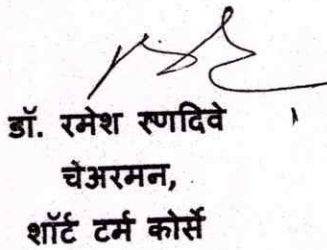 डॉ. रमेश रणदिवे
चेअरमन,
शॉर्ट टर्म कोर्से